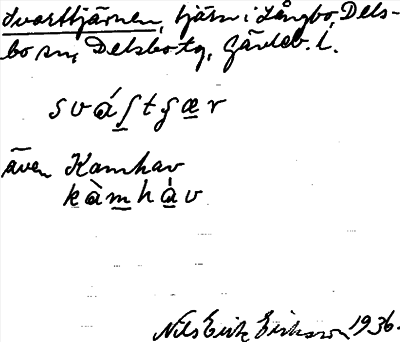 Svarttjärnen, tjärn i Långbo, Dels-
bo sn, Delsbo tg, Gävleb. l.
även Kamhav
Nils Erik Eriksson 1936.